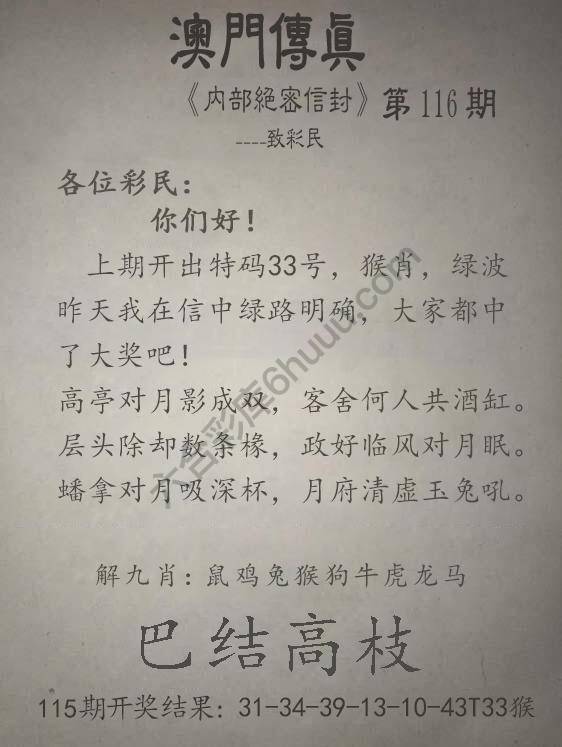 澳門傳真
《内部絕密信封》第116期
----致彩民
各位彩民：
你们好！
上期开出特码33号，猴肖，绿波
昨天我在信中绿路明确，大家都中
了大奖吧！
高亭对月影成双，客舍何人共酒缸。
层头除却数条椽，政好临风对月眠。
蟠拿对月吸深杯，月府清虚玉兔吼。
解九肖：鼠鸡兔猴狗牛虎龙马
巴结高枝
115期开奖结果：31-34-39-13-10-43T33猴
六合彩库6huuu.com